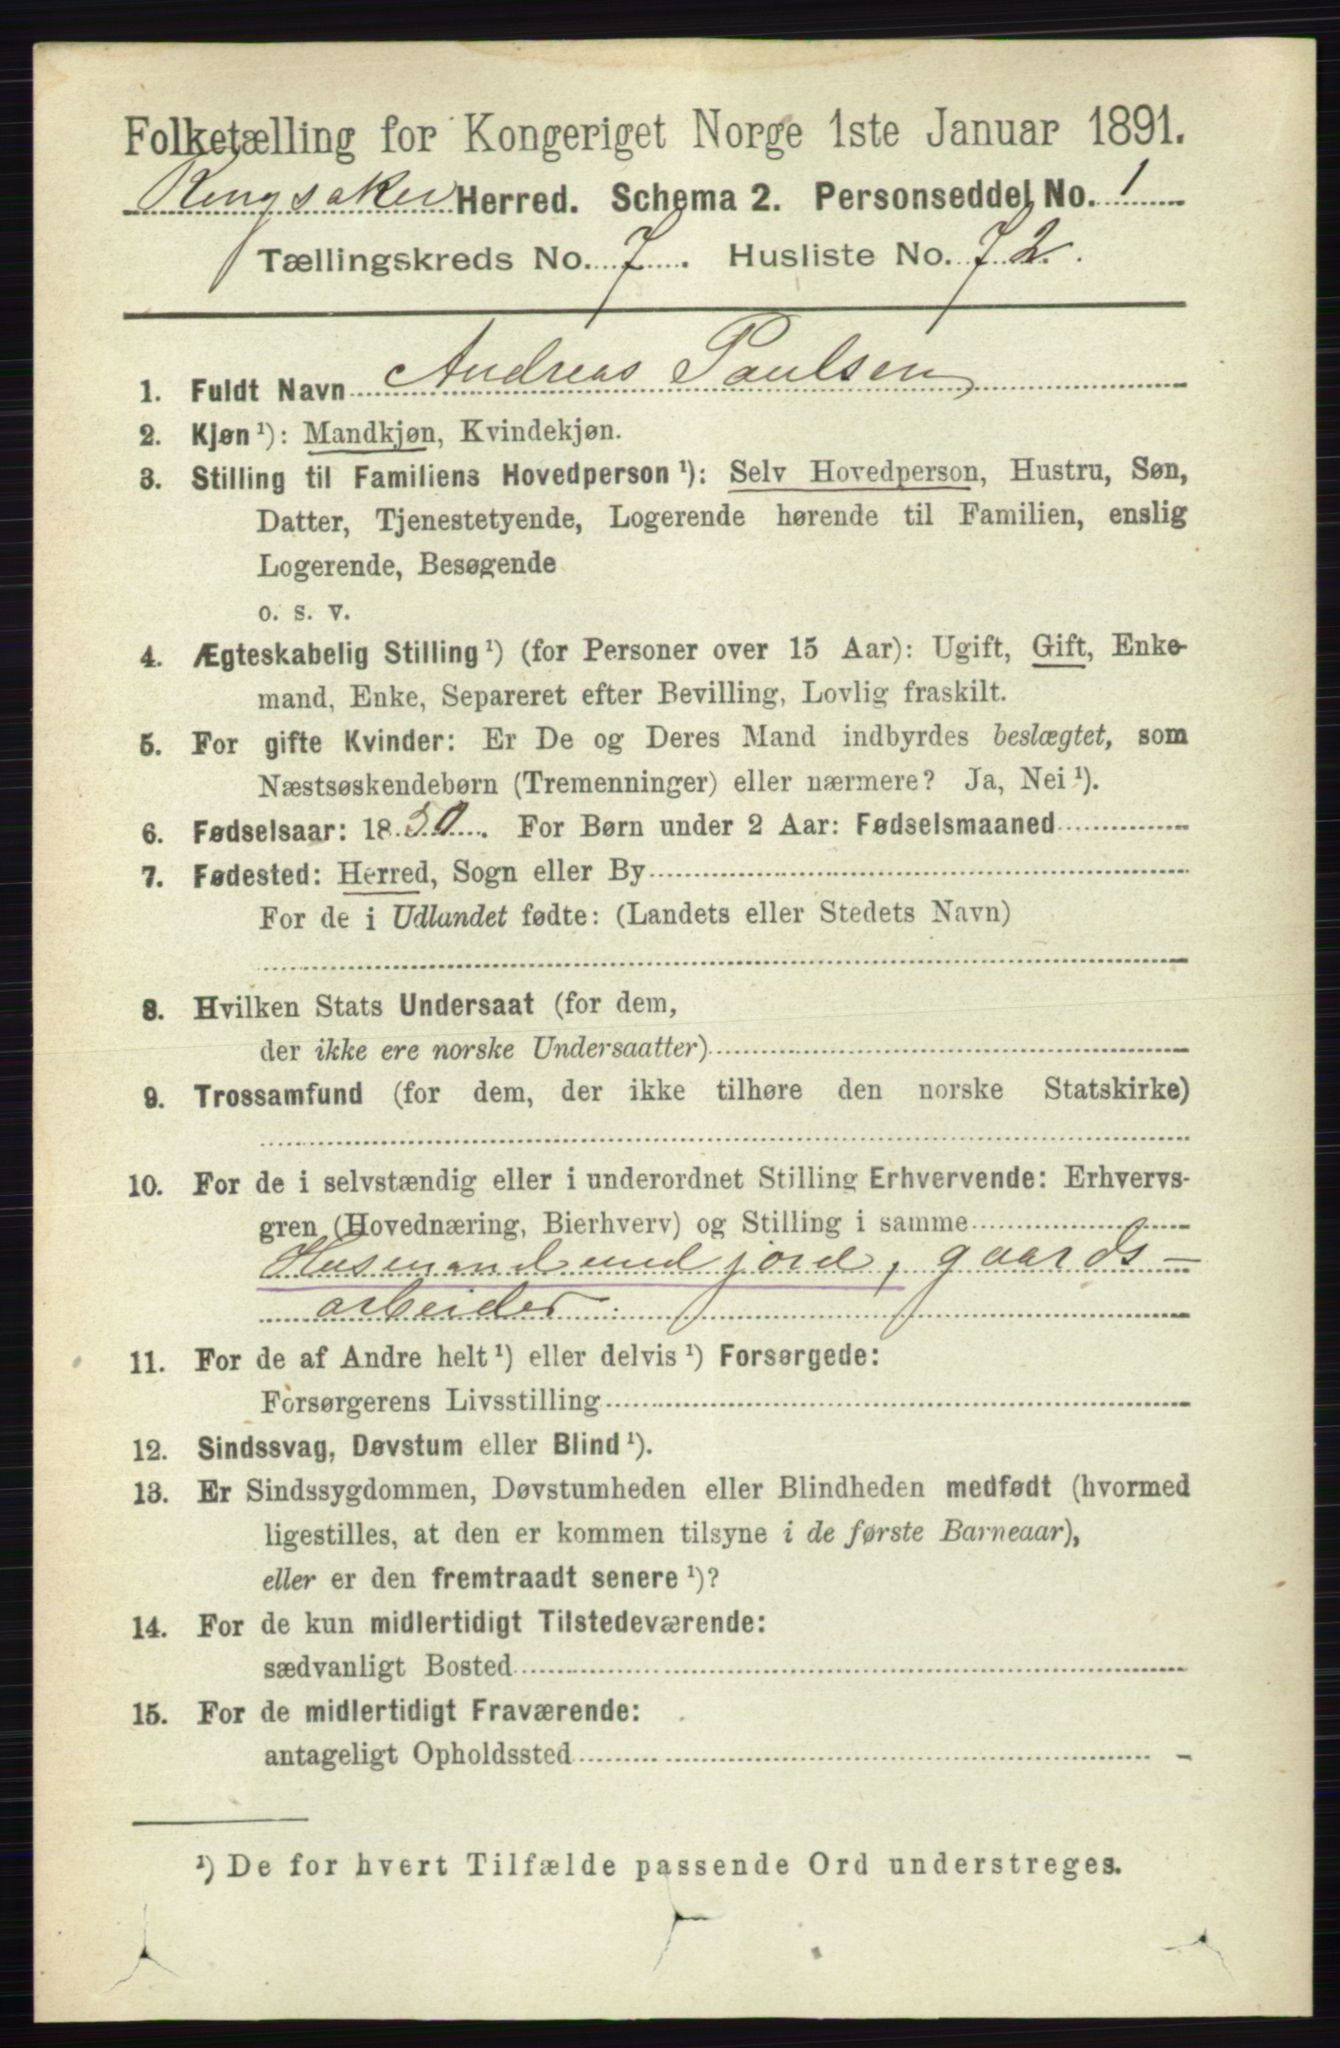 Folketælling for Kongeriget Norge 1ste Januar 1891.
Ringsaker Herred. Schema 2. Personseddel No. 1
Tællingskreds No. 7. Husliste No. 72.
1. Fuldt Navn Andreas Paulsen
2. Kjøn¹): Mandkjøn, Kvindekjøn.
3. Stilling til Familiens Hovedperson¹): Selv Hovedperson, Hustru, Søn,
Datter, Tjenestetyende, Logerende hørende til Familien, enslig
Logerende, Besøgende
o. s. v.
4. Ægteskabelig Stilling¹) (for Personer over 15 Aar): Ugift, Gift, Enke-
mand, Enke, Separeret efter Bevilling, Lovlig fraskilt.
5. For gifte Kvinder: Er De og Deres Mand indbyrdes beslægtet, som
Næstsøskendebørn (Tremenninger) eller nærmere? Ja, Nei¹).
6. Fødselsaar: 1830. For Børn under 2 Aar: Fødselsmaaned
7. Fødested: Herred, Sogn eller By
For de i Udlandet fødte: (Landets eller Stedets Navn)
8. Hvilken Stats Undersaat (for dem,
der ikke ere norske Undersaatter)
9. Trossamfund (for dem, der ikke tilhøre den norske Statskirke)
10. For de i selvstændig eller i underordnet Stilling Erhvervende: Erhvervs-
gren (Hovednæring, Bierhverv) og Stilling i samme
Husmand med jord, gaards-
arbeider.
11. For de af Andre helt¹) eller delvis¹) Forsørgede:
Forsørgerens Livsstilling
12. Sindssvag, Døvstum eller Blind¹).
13. Er Sindssygdommen, Døvstumheden eller Blindheden medfødt (hvormed
ligestilles, at den er kommen tilsyne i de første Barneaar),
eller er den fremtraadt senere¹)?
14. For de kun midlertidigt Tilstedeværende:
sædvanligt Bosted
15. For de midlertidigt Fraværende:
antageligt Opholdssted
¹) De for hvert Tilfælde passende Ord understreges.